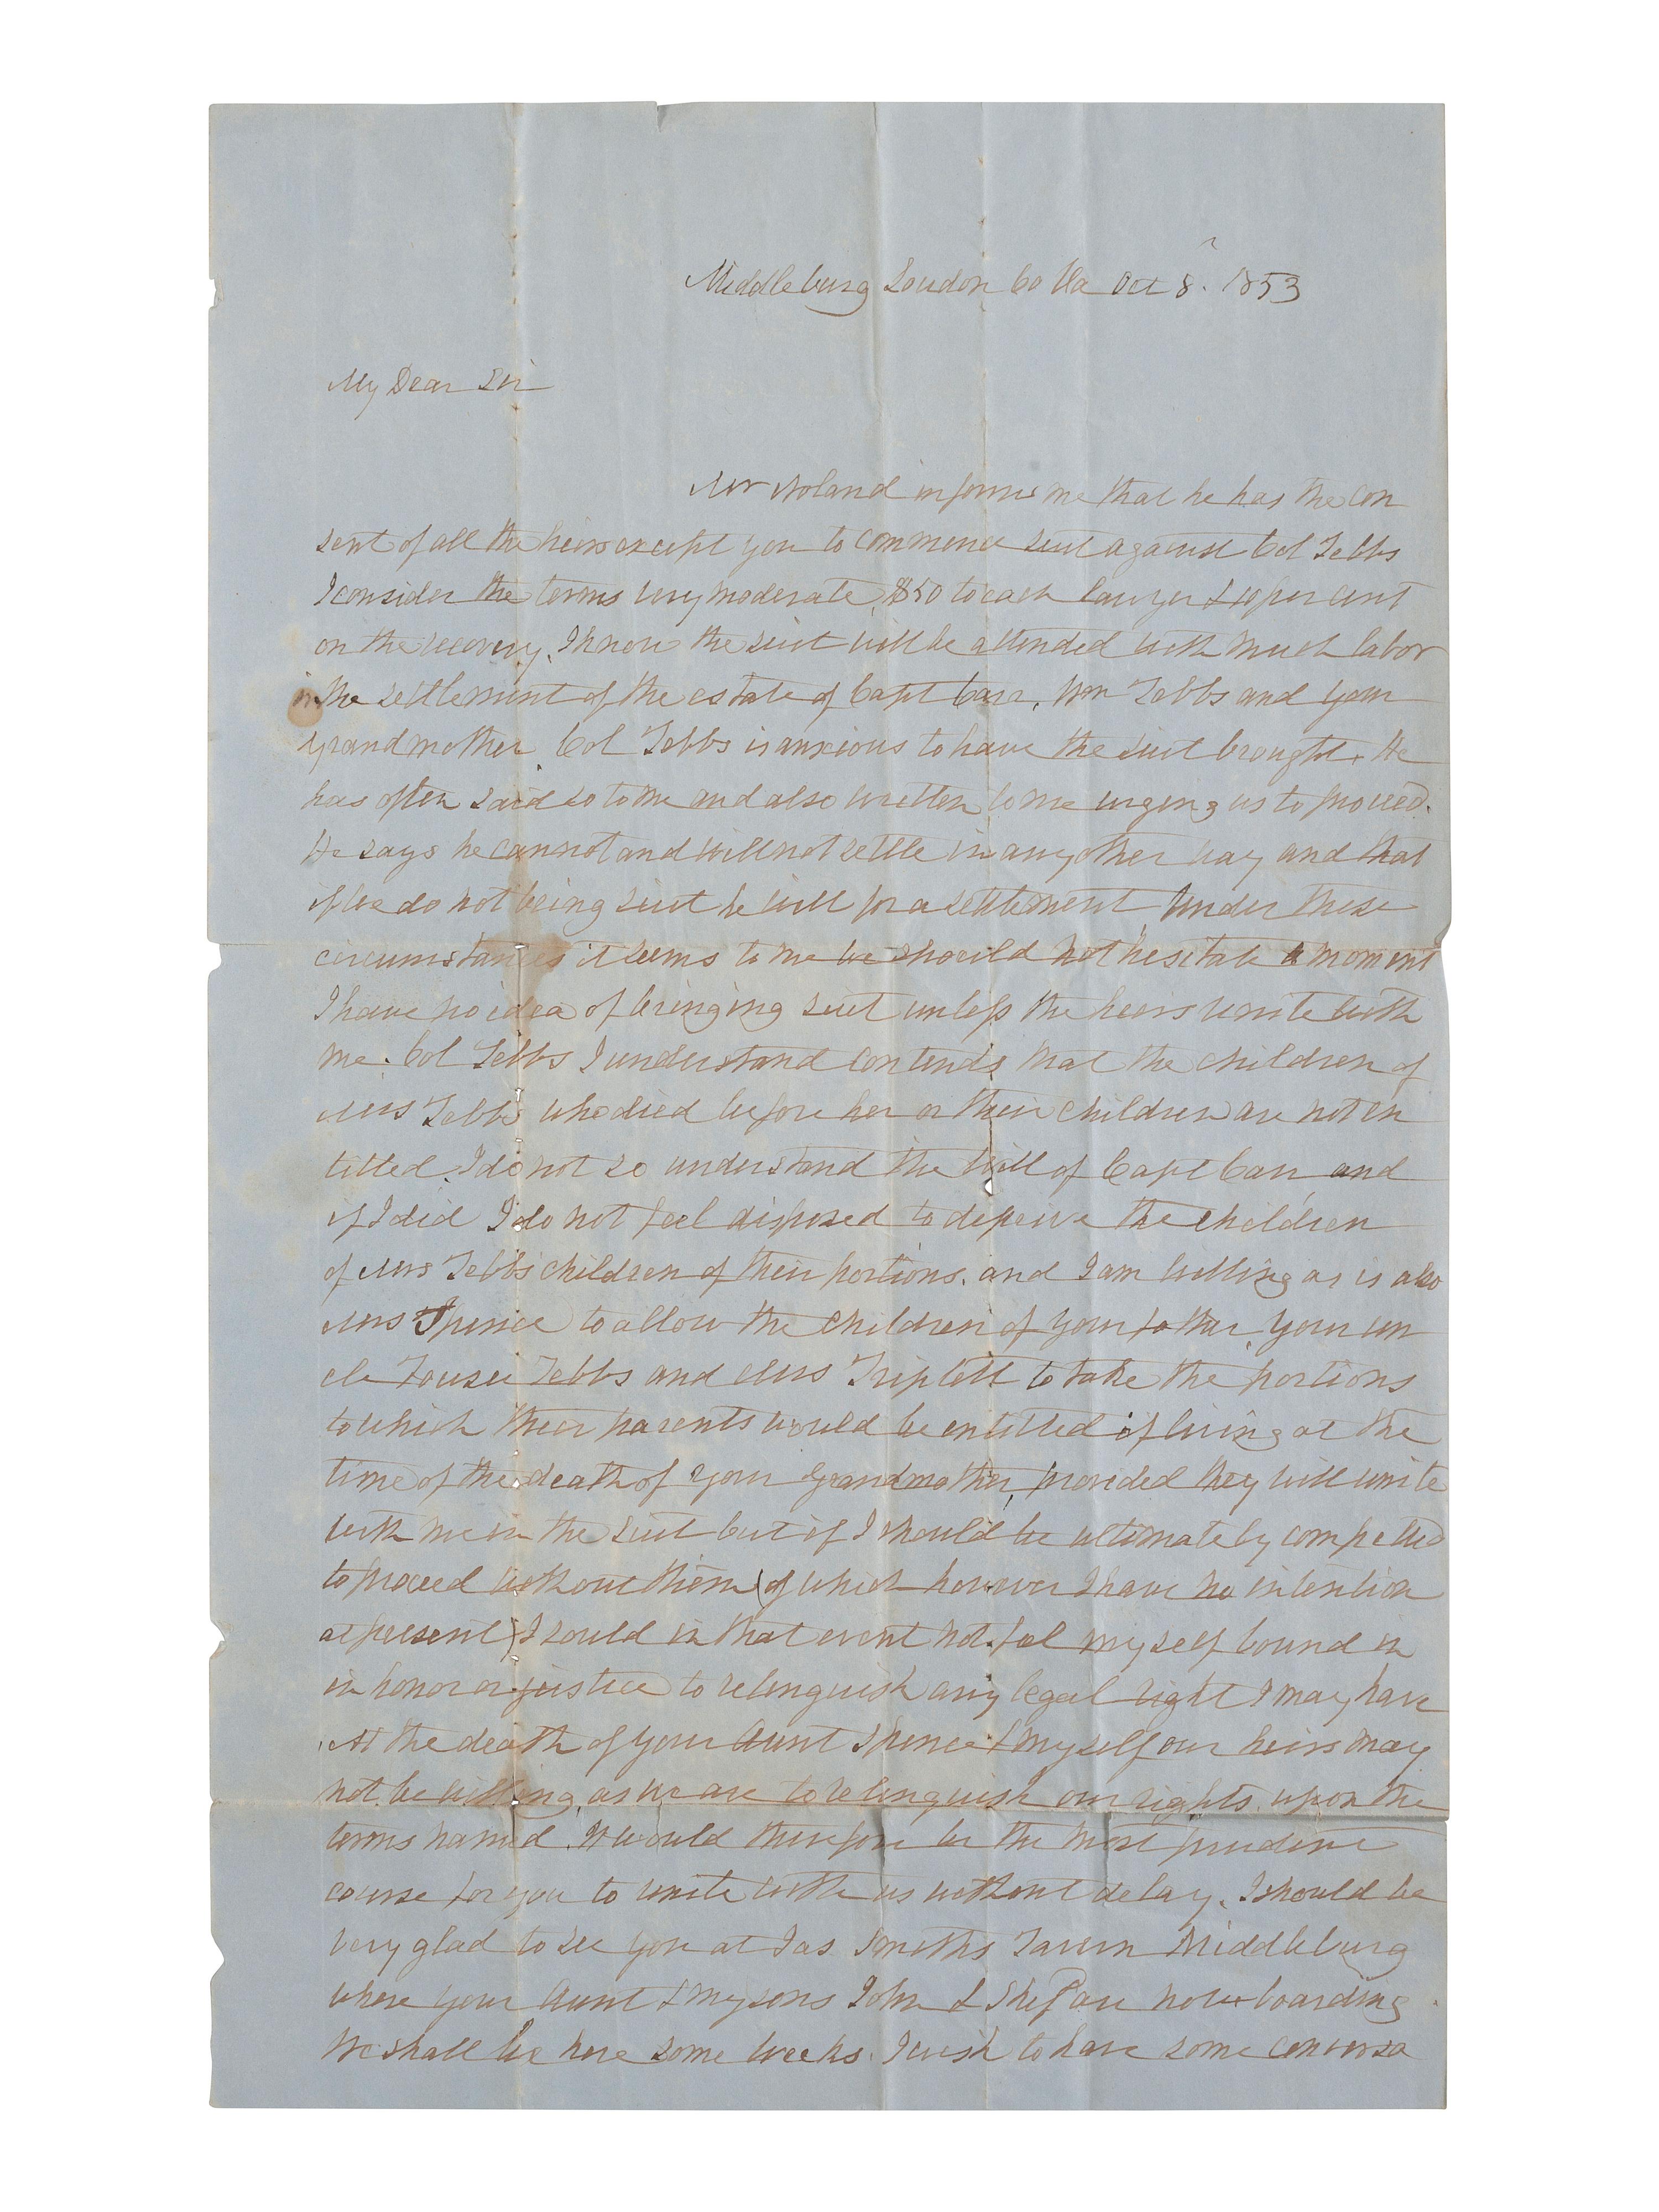 Middleburg Loudon Co Va Oct 8. 1853
My Dear Sir
Mr Noland informs me that he has the con
sent of all the heirs except you to commence suit against Col Tebbs
I consider the terms very moderate, $50 to each lawyer & 10 per cent
on the recovery. I know the suit will be attended with much labor
in the settlement of the estate of Capt Carr, Wm Tebbs and your
grandmother. Col Tebbs is anxious to have the suit brought. He
has often said so to me and also written to me urging us to proceed.
He says he cannot and will not settle in any other way and that
if we do not bring suit he will for a settlement Under these
circumstances it seems to me we should not hesitate a moment
I have no idea of bringing suit unless the heirs unite with
me. Col Tebbs I understand contends that the children of
Mrs Tebbs who died before her or their children are not en
titled. I do not so understand the will of Capt Carr and
if I did I do not feel disposed to deprive the children
of Mrs Tebbs children of their portions. and I am willing as is also
Mrs Spence to allow the children of your father, your un
cle Fouse Tebbs and Mrs Triplett to take the portions
to which their parents would be entitled if living at the
time of the death of your Grandmother, provided they will unite
with me in the suit but if I should be ultimately compelled
to proceed without them (of which however I have no intention
at present) I sould in that event not feel myself bound in
in honor or justice to relinquish any legal right I may have
At the death of your Aunt Spence & myself our heirs may
not be willing, as we are to relinquish our rights upon the
terms named. It would therefore be the most prudent
course for you to unite with us without delay. I should be
very glad to see you at Jas Smiths Tavern Middleburg
where your Aunt & my sons John & Shep are now boarding
We shall be here some weeks. I wish to have some conversa